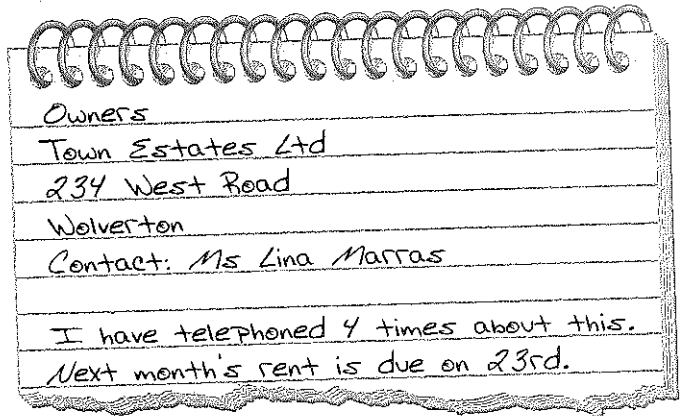 Owners
Town Estates Ltd
234 West Road
Wolverton
Contact: Ms Lina Marras
I have telephoned 4 times about this.
Next month's rent is due on 23rd.